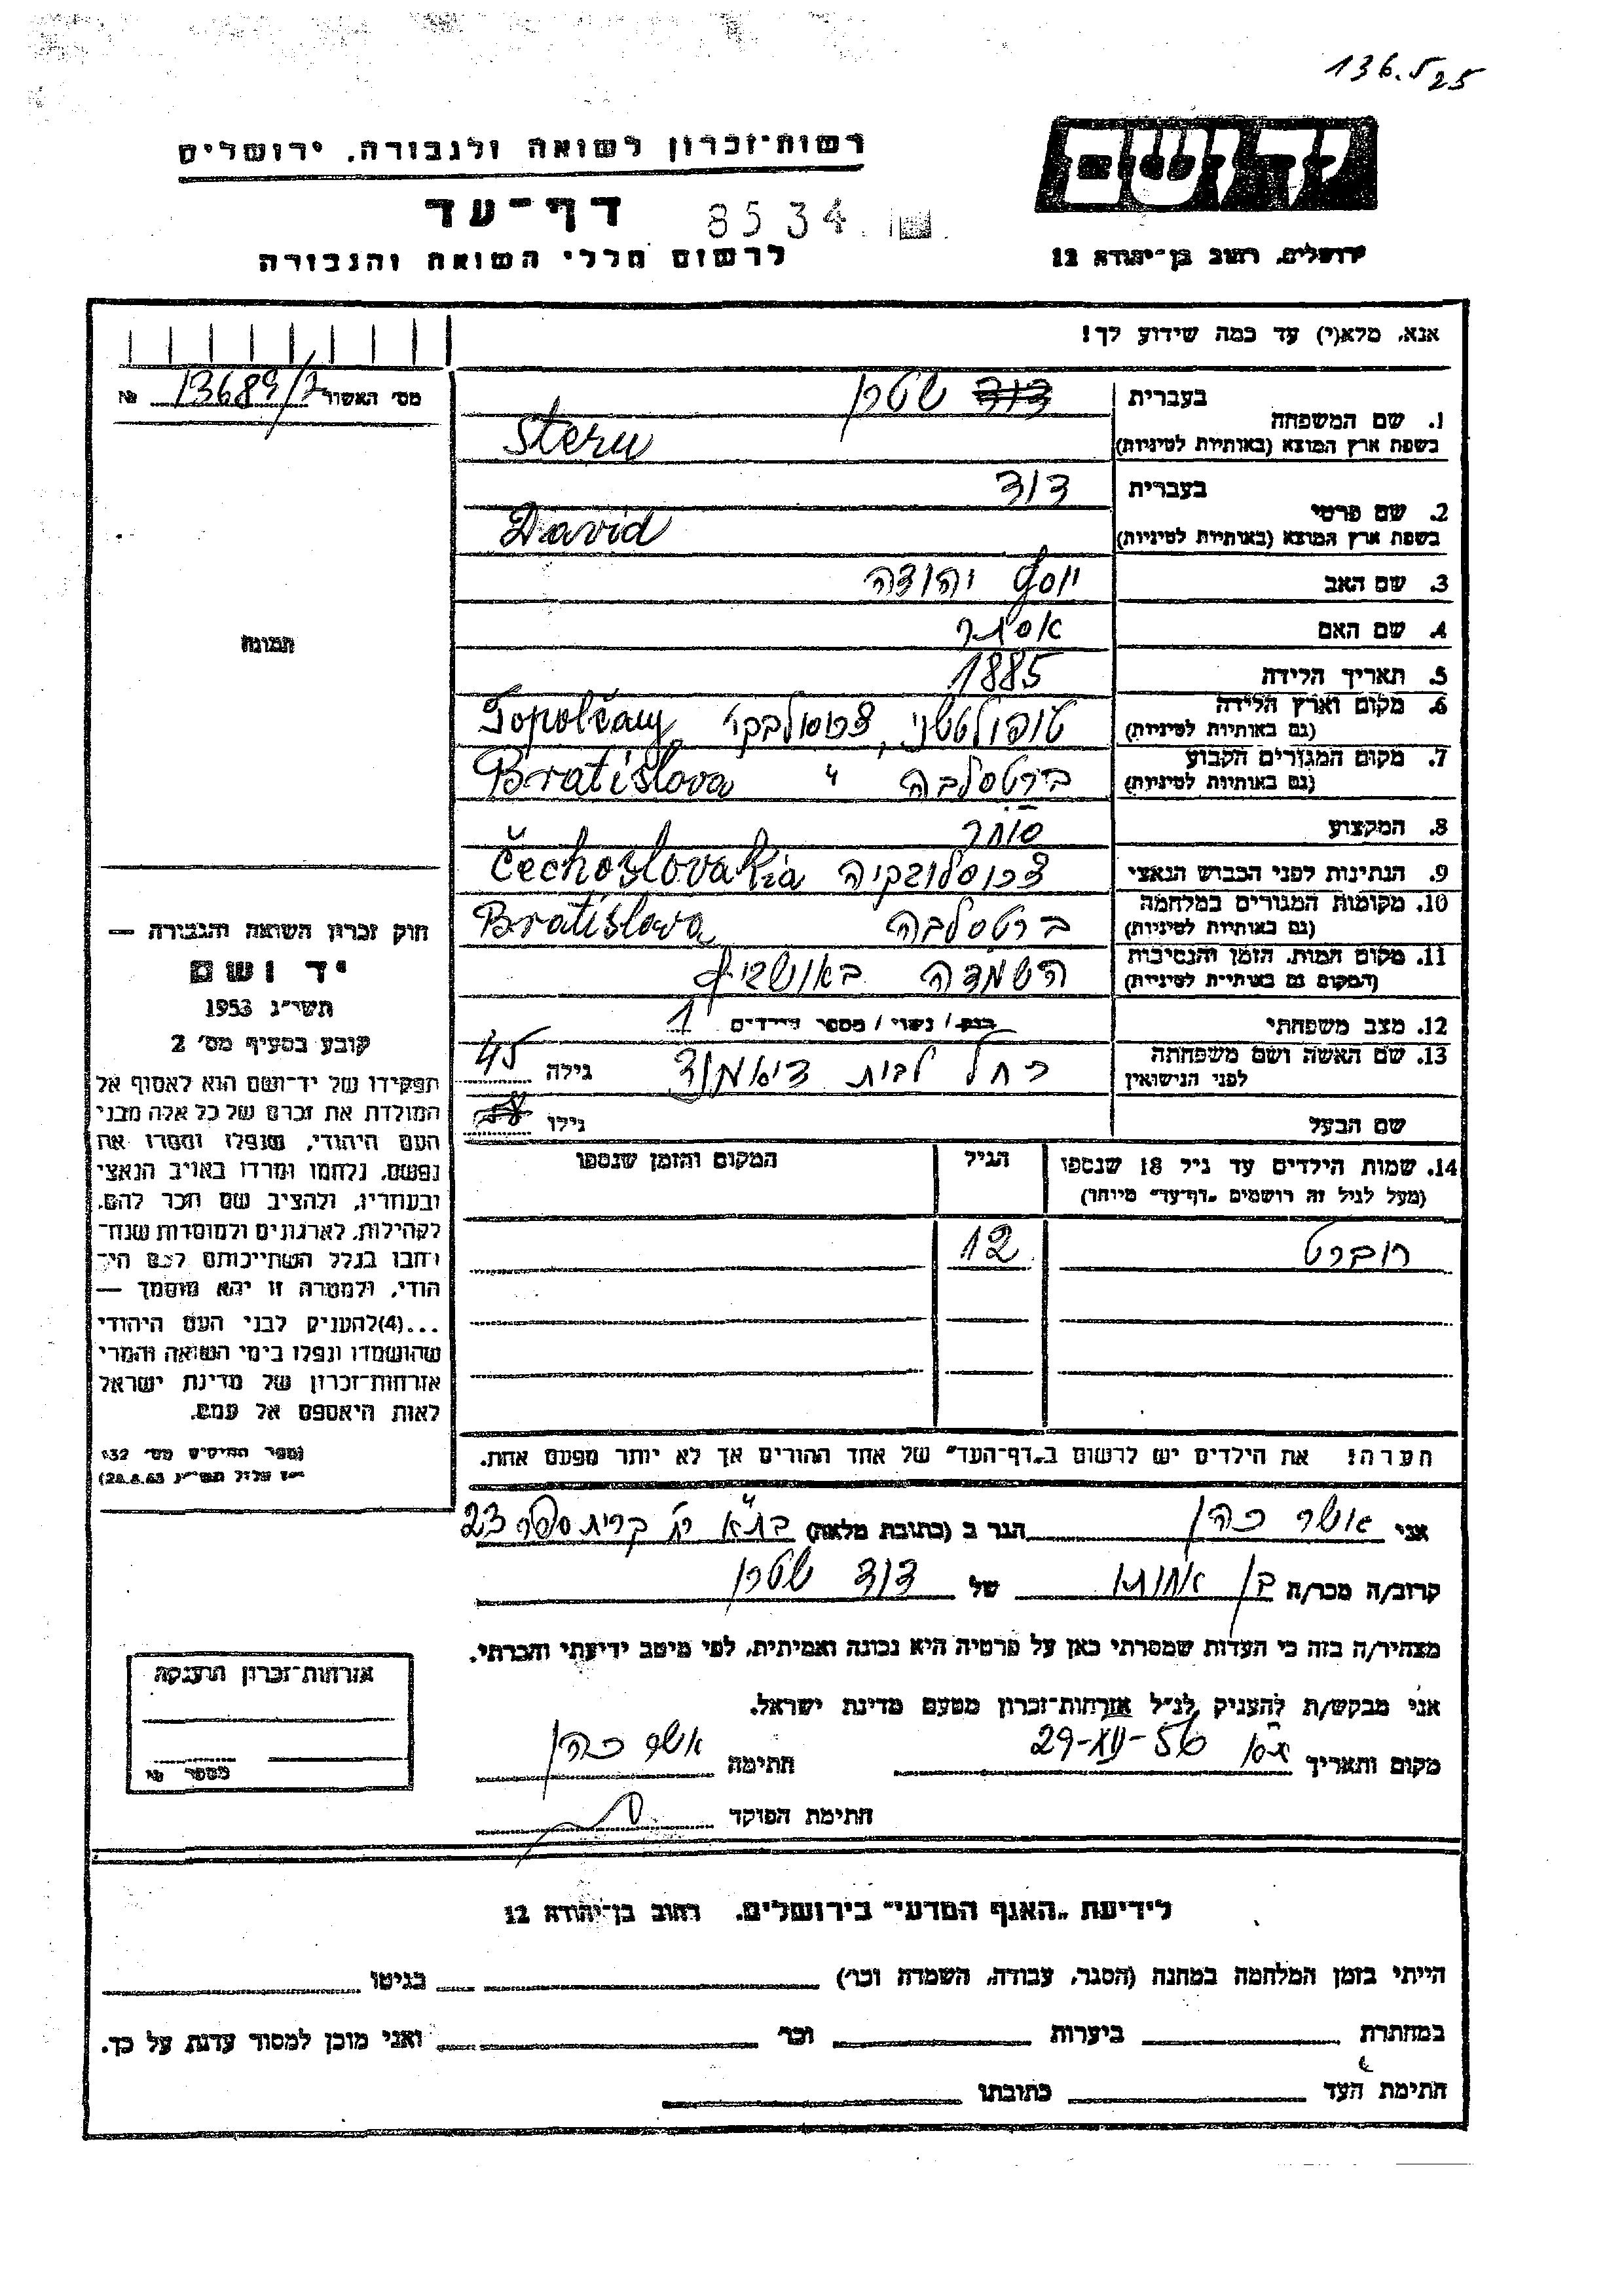 136.525
יד ושם
רשות־זכרון לשואה ולגבורה, ירושלים
דף־עד 8534
לרשום חללי השואה והגבורה
ירושלים, רחוב בן־יהודה 12
אנא, מלא(י) עד כמה שידוע לך!
מס׳ האשור 13689/2 №
1. שם המשפחה
בעברית שטרן
בשפת ארץ המוצא (באותיות לטיניות) Stern
2. שם פרטי
בעברית דוד
בשפת ארץ המוצא (באותיות לטיניות) David
3. שם האב יוסף יהודה
4. שם האם אסתר
5. תאריך הלידה 1885
6. מקום וארץ הלידה
(גם באותיות לטיניות) Topolčany
7. מקום המגורים הקבוע
(גם באותיות לטיניות) ברטסלבה " Bratislova
8. המקצוע סוחר
9. הנתינות לפני הכבוש הנאצי צכוסלובקיה Čechoslovakia
10. מקומות המגורים במלחמה
(גם באותיות לטיניות) ברטסלבה Bratislova
11. מקום המות, הזמן והנסיבות
(המקום גם באותיות לטיניות) השמדה באושביץ
12. מצב משפחתי רווק / נשוי / מספר הילדים 1
13. שם האשה ושם משפחתה
לפני הנישואין רחל לבית דיאמנד גילה 45
שם הבעל גילו
14. שמות הילדים עד גיל 18 שנספו
(מעל לגיל זה רושמים „דף־עד״ מיוחד)
הגיל
המקום והזמן שנספו
רוברט 12
הערה! את הילדים יש לרשום ב„דף־העד״ של אחד ההורים אך לא יותר מפעם אחת.
תמונה
חוק זכרון השואה והגבורה —
יד ושם
תשי״ג 1953
קובע בסעיף מס׳ 2
תפקידו של יד־ושם הוא לאסוף אל
המולדת את זכרם של כל אלה מבני
העם היהודי, שנפלו ומסרו את
נפשם, נלחמו ומרדו באויב הנאצי
ובעוזריו, ולהציב שם וזכר להם,
לקהילות, לארגונים ולמוסדות שנח־
רבו בגלל השתייכותם לעם הי־
הודי, ולמטרה זו יהא מוסמך —
...(4) להעניק לבני העם היהודי
שהושמדו ונפלו בימי השואה והמרי
אזרחות־זכרון של מדינת ישראל
לאות היאספם אל עמם.
(ספר החוקים מס׳ 132
אני אושר כהן הגר ב (כתובת מלאה) בת״א קרית ספר 23
קרוב/ה מכר/ה בן אחותו של דוד שטרן
מצהיר/ה בזה כי העדות שמסרתי כאן על פרטיה היא נכונה ואמיתית, לפי מיטב ידיעתי והכרתי.
אני מבקש/ת להעניק לנ״ל אזרחות־זכרון מטעם מדינת ישראל.
מקום ותאריך 29-XII-56 חתימה אושר כהן
חתימת הפוקד
אזרחות־זכרון הוענקה
מספר
לידיעת „האגף המדעי״ בירושלים, רחוב בן־יהודה 12
הייתי בזמן המלחמה במחנה (הסגר, עבודה, השמדה וכו׳) בגיטו
במחתרת ביערות וכו׳ ואני מוכן למסור עדות על כך.
חתימת העד כתובתו